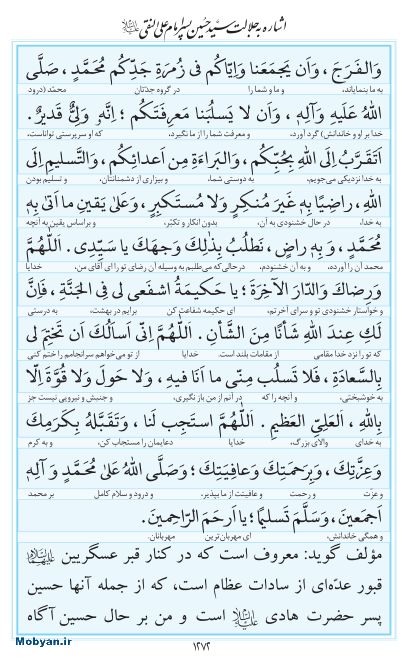 اشاره به جلالت سید حسین پسر امام علی النقی علیه‌السلام
وَالفَرَجَ ، وَاَن يَجمَعَنا وَاِيّاكُم فى زُمرَةِ جَدِّكُم مُحَمَّدٍ ، صَلَّى
به ما بنمایاند، و ما و شما را در گروه جدّتان محمّد (درود
اللهُ عَلَيهِ وَآلِهِ ، وَاَن لا يَسلُبَنا مَعرِفَتَكُم ؛ اِنَّهُ وَلِىٌّ قَديرٌ .
خدا بر او و خاندانش) گرد آورد، و معرفت شما را از ما نگیرد، که او سرپرستی تواناست،
اَتَقَرَّبُ اِلَى اللهِ بِحُبِّكُم ، وَالبَراءَةِ مِن اَعدائِكُم ، وَالتَّسليمِ اِلَى
به خدا نزدیکی می‌جویم، به دوستی شما، و بیزاری از دشمنانتان، و تسلیم بودن
اللهِ ، راضِيًا بِهِ غَيرَ مُنكِرٍ وَلا مُستَكبِرٍ ، وَعَلىٰ يَقينِ ما اَتىٰ بِهِ
به خدا، در حال خشنودی به آن، بدون انکار و تکبّر، و براساس یقین به آنچه
مُحَمَّدٌ ، وَ بِهِ راضٍ ، نَطلُبُ بِذٰلِكَ وَجهَكَ يا سَيِّدى . اَللّٰهُمَّ
محمد آن را آورده، و به آن خشنودم، درحالی‌که می‌طلبیم به وسیله آن رضای تو را ای آقای من، خدایا
وَ رِضاكَ وَالدّارَ الآخِرَةَ ؛ يا حَكيمَةُ اشفَعى لى فِى الجَنَّةِ ، فَاِنَّ
و خواستار خشنودی تو و سرای آخرتم، ای حکیمه شفاعت کن برایم در بهشت، به درستی
لَكِ عِندَ اللهِ شَأنًا مِنَ الشَّأنِ . اَللّٰهُمَّ اِنّى اَسأَلُكَ اَن تَختِمَ لى
که تو را نزد خدا مقامی از مقامات بلند است. خدایا از تو می‌خواهم سرانجامم را ختم کنی
بِالسَّعادَةِ ، فَلا تَسلُب مِنّى ما اَنَا فيهِ ، وَلا حَولَ وَلا قُوَّةَ اِلّا
به خوشبختی، و آنچه را که در آنم از من باز نگیری، و جنبش و نیرویی نیست جز
بِاللهِ ، اَلعَلِىِّ العَظيمِ . اَللّٰهُمَّ استَجِب لَنا ، وَتَقَبَّلهُ بِكَرَمِكَ
به خدای والای بزرگ، خدایا دعایمان را مستجاب کن، و به کرم
وَعِزَّتِكَ ، وَبِرَحمَتِكَ وَعافِيَتِكَ ؛ وَصَلَّى اللهُ عَلىٰ مُحَمَّدٍ وَ آلِهِ
و عزّت و رحمت و عافیتت از ما بپذیر، و درود و سلام کامل بر محمد
اَجمَعينَ ، وَسَلَّمَ تَسليمًا ؛ يا اَرحَمَ الرّاحِمينَ .
و همگی خاندانش، ای مهربان‌ترین مهربانان.
مؤلف گوید: معروف است که در کنار قبر عسگریین علیهماالسلام
قبور عدّه‌ای از سادات عظام است، که از جمله آنها حسین
پسر حضرت هادی علیه‌السلام است و من بر حال حسین آگاه
Mobyan.ir
۱۲۷۲